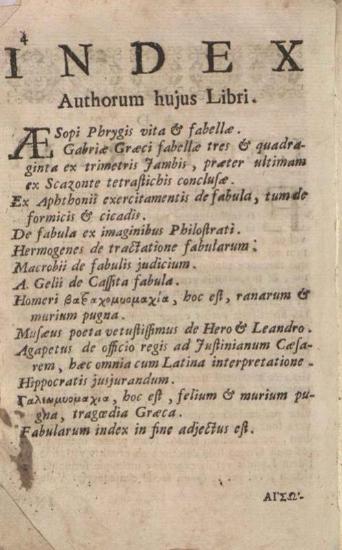 4
INDEX
Authorum hujus Libri.
ÆSopi Phrygis vita & fabellæ.
Gabriæ Græci fabellæ tres & quadra-
ginta ex trimetris Jambis, præter ultimam
ex Scazonte tetrastichis conclusæ.
Ex Aphthonii exercitamentis de fabula, tum de
formicis & cicadis.
De fabula ex imaginibus Philostrati.
Hermogenes de tractatione fabularum.
Macrobii de fabulis judicium.
A. Gelii de Cassita fabula.
Homeri βατραχομυομαχία, hoc est, ranarum &
murium pugna.
Musæus poeta vetustissimus de Hero & Leandro.
Agapetus de officio regis ad Justinianum Cæsa-
rem, hæc omnia cum Latina interpretatione.
Hippocratis jusjurandum.
Γαλεωμυομαχια, hoc est, felium & murium pu-
gna, tragœdia Græca.
Fabularum index in fine adjectus est.
ΑΙΣΩ-